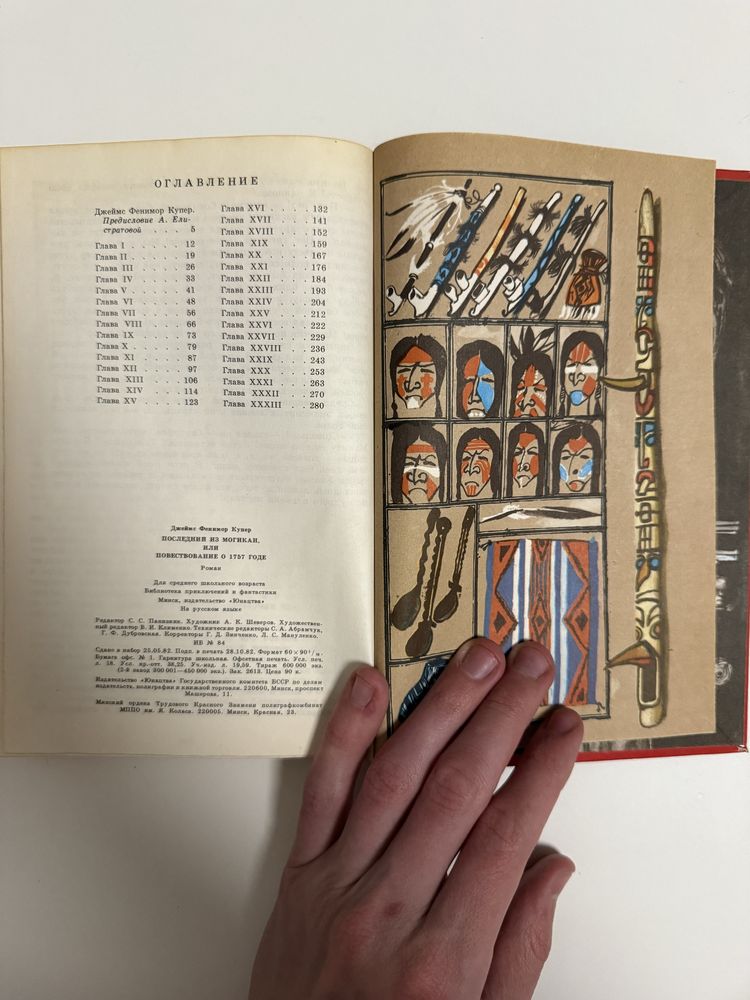 ОГЛАВЛЕНИЕ
Джеймс Фенимор Купер.
Предисловие А. Ели-
стратовой . . . 5
Глава I . . . . 12
Глава II . . . . 19
Глава III . . . . 26
Глава IV . . . . 33
Глава V . . . . 41
Глава VI . . . . 48
Глава VII . . . . 56
Глава VIII . . . . 66
Глава IX . . . . 73
Глава X . . . . 79
Глава XI . . . . 87
Глава XII . . . . 97
Глава XIII . . . . 106
Глава XIV . . . . 114
Глава XV . . . . 123
Глава XVI . . . . 132
Глава XVII . . . . 141
Глава XVIII . . . 152
Глава XIX . . . . 159
Глава XX . . . . 167
Глава XXI . . . . 176
Глава XXII . . . . 184
Глава XXIII . . . 193
Глава XXIV . . . 204
Глава XXV . . . . 212
Глава XXVI . . . 222
Глава XXVII . . . 229
Глава XXVIII . . . 236
Глава XXIX . . . 243
Глава XXX . . . . 253
Глава XXXI . . . 263
Глава XXXII . . . 270
Глава XXXIII . . . 280
Джеймс Фенимор Купер
ПОСЛЕДНИЙ ИЗ МОГИКАН,
ИЛИ
ПОВЕСТВОВАНИЕ О 1757 ГОДЕ
Роман
Для среднего школьного возраста
Библиотека приключений и фантастики
Минск, издательство «Юнацтва»
На русском языке
Редактор С. С. Панизник. Художник А. К. Шеверов. Художествен-
ный редактор В. И. Клименко. Технические редакторы С. А. Абрамчук,
Г. Ф. Дубровская. Корректоры Г. Д. Зинченко, Л. С. Мануленко.
ИБ № 84
Сдано в набор 25.05.82. Подп. в печать 28.10.82. Формат 60×90¹/₁₆.
Бумага офс. № 1. Гарнитура школьная. Офсетная печать. Усл. печ.
л. 18. Усл. кр.-отт. 38,25. Уч.-изд. л. 19,59. Тираж 600 000 экз.
(2-й завод 300 001—450 000 экз.). Зак. 2613. Цена 90 к.
Издательство «Юнацтва» Государственного комитета БССР по делам
издательств, полиграфии и книжной торговли. 220600, Минск, проспект
Машерова, 11.
Минский ордена Трудового Красного Знамени полиграфкомбинат
МППО им. Я. Коласа. 220005, Минск, Красная, 23.